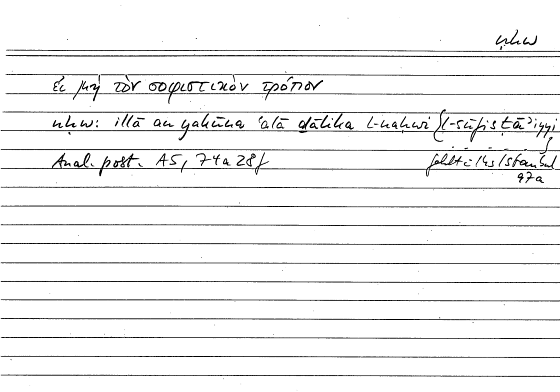 nḥw
εἰ μὴ τὸν σοφιστικὸν τρόπον
nḥw: illā an yakūna ʿalā ḏālika l-naḥwi {l-sūfisṭāʾiyyi}
Anal. post. A5, 74a28f
fehlt i. Hs Istanbul
97a